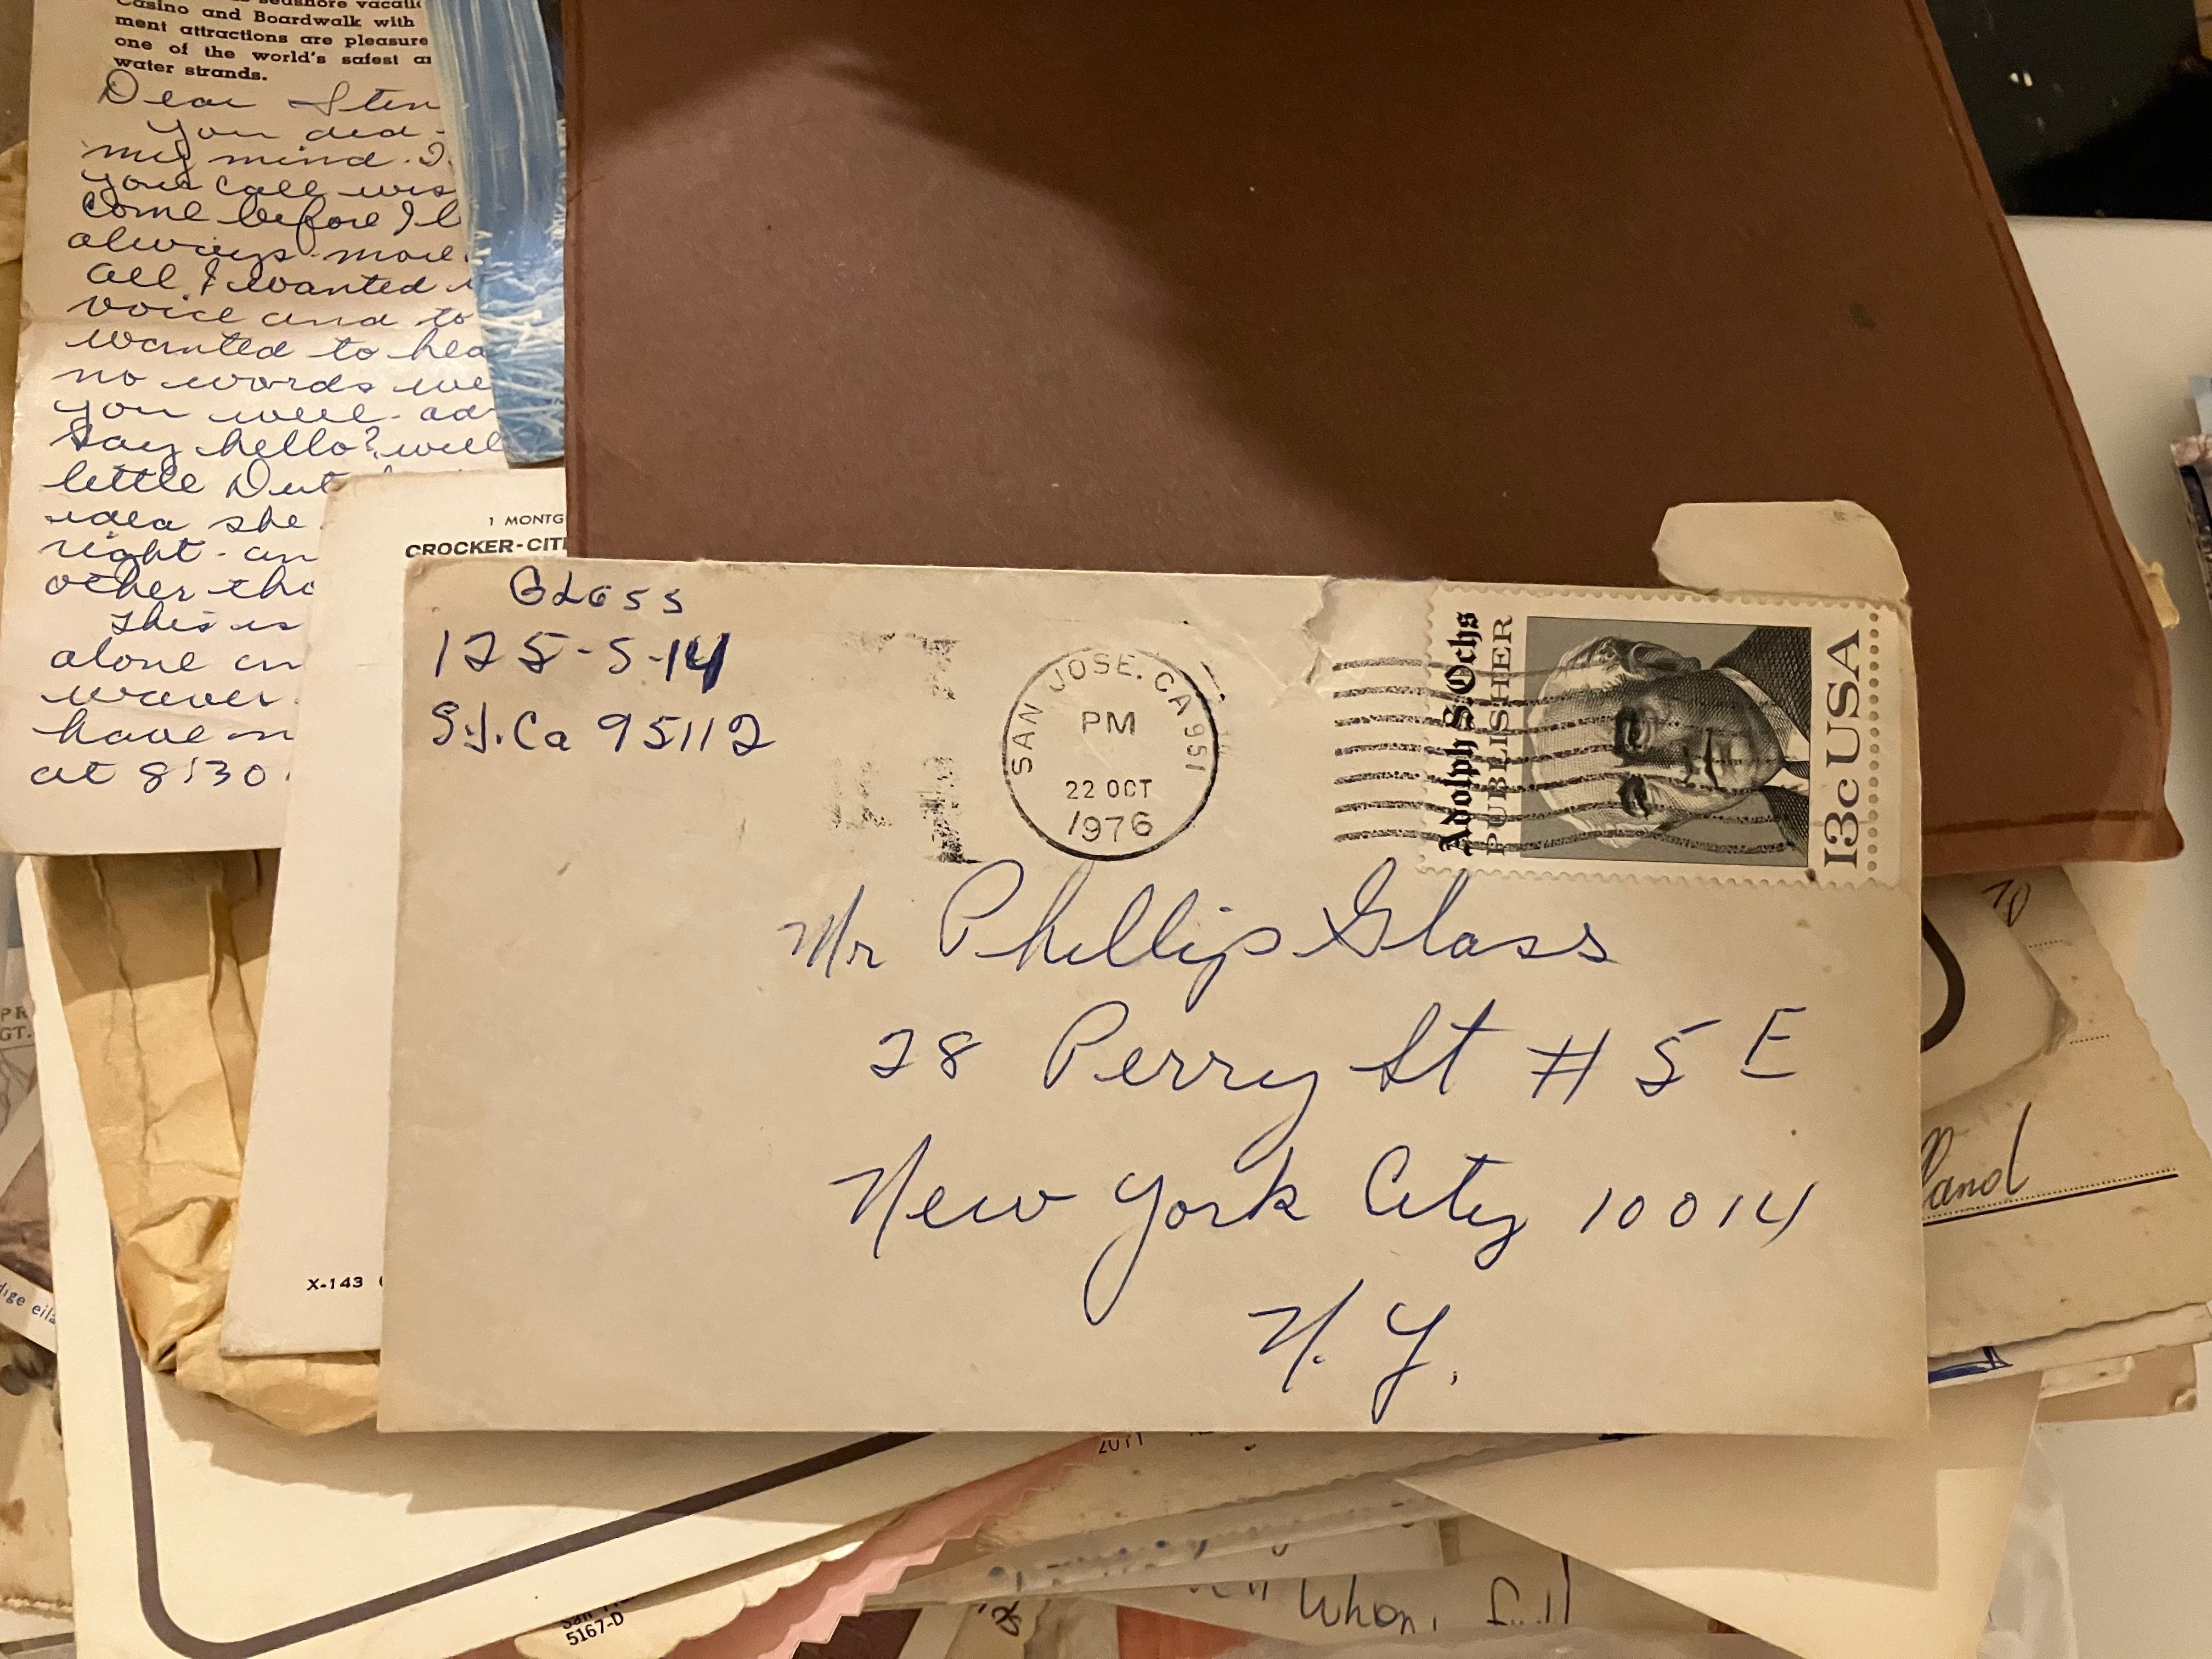 Casino and Boardwalk with
ment attractions are pleasure
one of the world's safest
water strands.
Dear
you
my mind.
your call
come before I
always more
all I wanted
voice and to
wanted to
no words
you well
Say hello? well
little
idea she
right - an
other
This is
alone
waver
have
at 8:30
1 MONTG
CROCKER-CITI
X-143
GLASS
125-S-14
S.J. Ca 95112
SAN JOSE, CA 951
PM
22 OCT
1976
Adolph S. Ochs
PUBLISHER
13c USA
Mr Phillip Glass
28 Perry St # 5 E
New York City 10014
N. Y.
land
5167-D